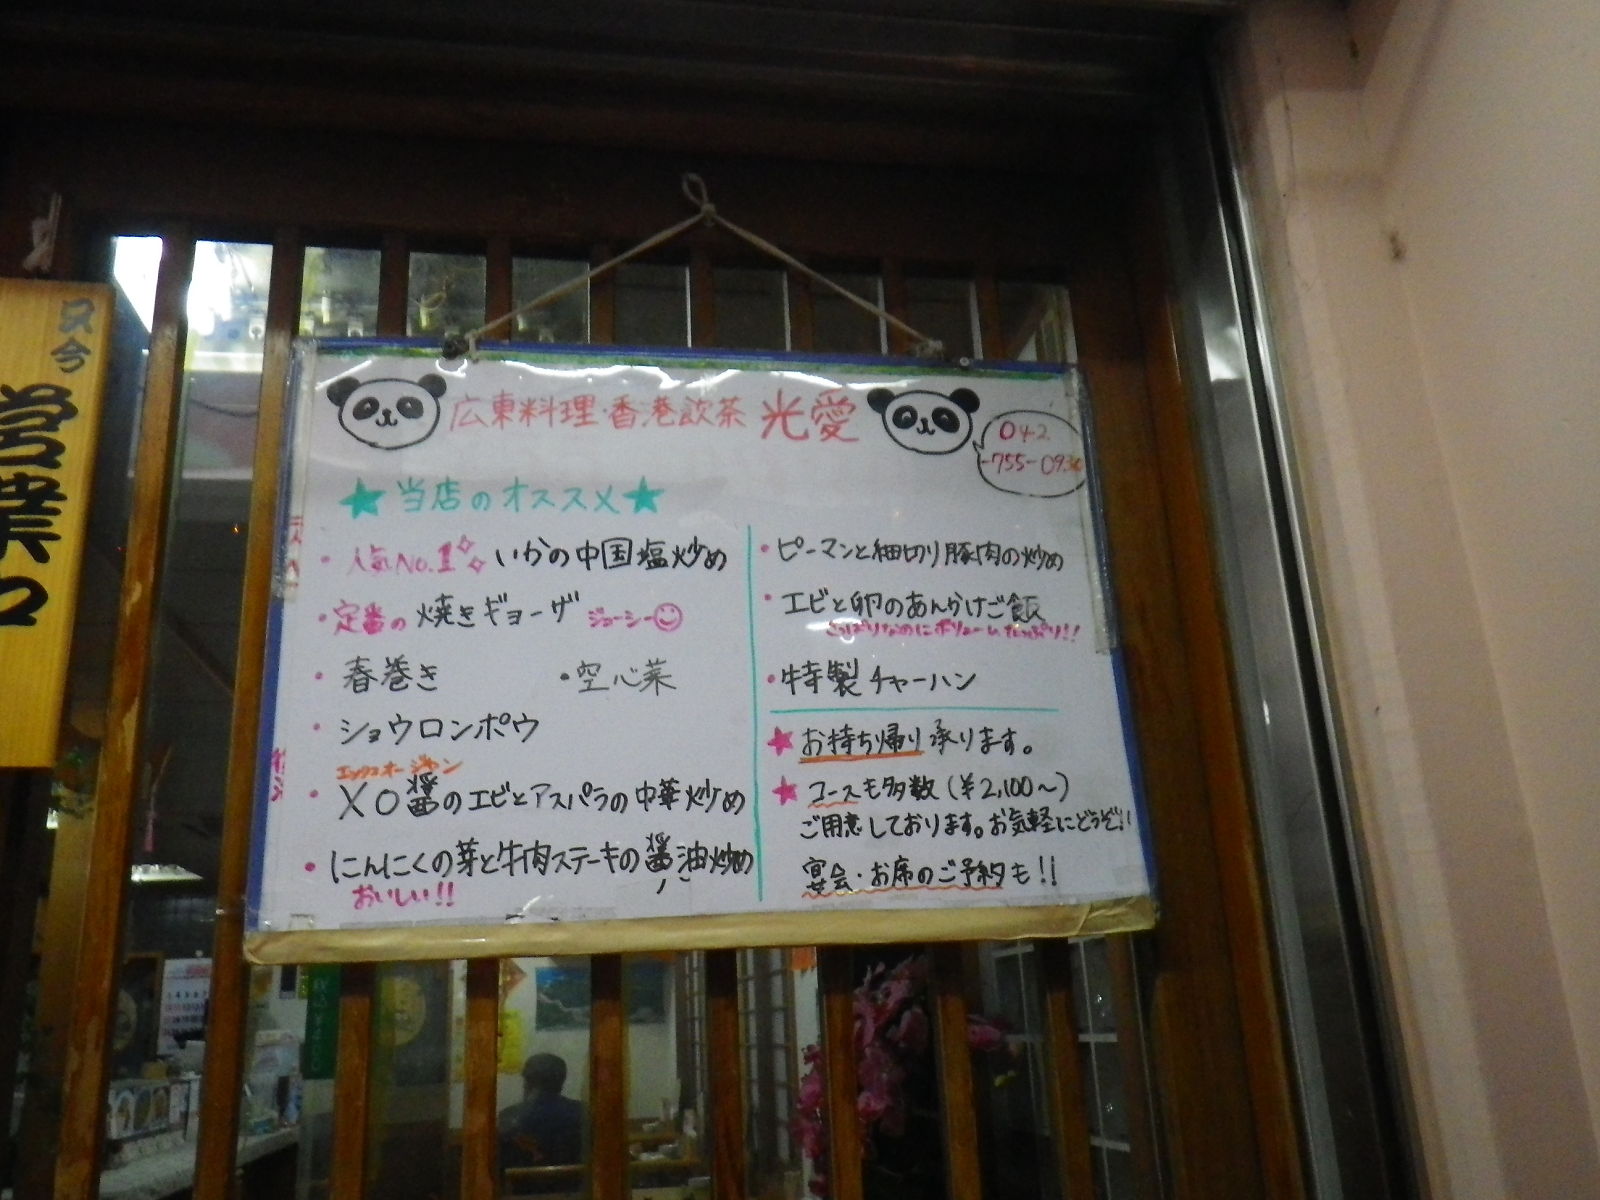 只今
営業中
広東料理・香港飲茶 光愛
042
-755-0930
★当店のオススメ★
・人気No.1 いかの中国塩炒め
・定番の焼きギョーザ ジューシー
・春巻き ・空心菜
・ショウロンポウ
エックスオージャン
・XO醤のエビとアスパラの中華炒め
・にんにくの芽と牛肉ステーキの醤油炒め
おいしい!!
・ピーマンと細切り豚肉の炒め
・エビと卵のあんかけご飯
さっぱりなのにボリュームたっぷり!!
・特製チャーハン
★お持ち帰り承ります。
★コースも多数(¥2,100〜)
ご用意しております。お気軽にどうぞ!!
宴会・お席のご予約も!!